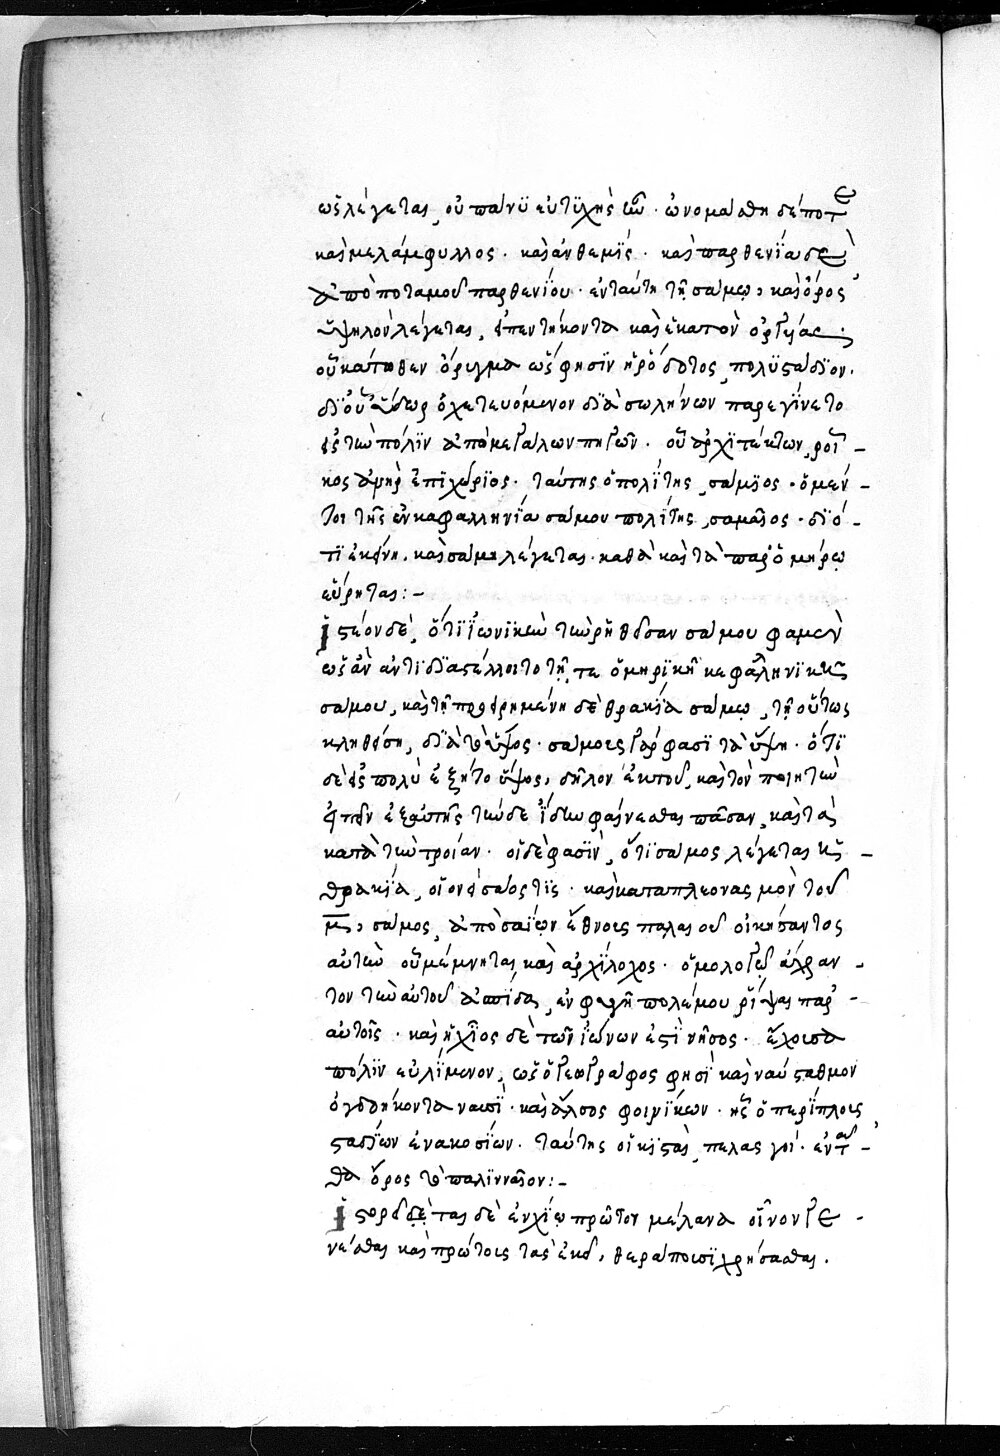 ὡς λέγεται, οὐ πάνυ εὐτυχὴς ὤν. ὠνομάσθη δέ ποτε
καὶ μελάμφυλλος. καὶ ἀνθεμΐς. καὶ παρθενΐα δὲ
ἀπὸ ποταμοῦ παρθενΐου. ἐν ταύτῃ τῇ σάμῳ, καὶ ὄρος
ὑψηλὸν λέγεται, ἐπεντήκοντα καὶ ἑκατὸν ὀργυιάς.
οὗ κάτωθεν ὄρυγμα ὥς φησΐν ἡρόδοτος, πολυστάδϊον.
δϊ οὗ ὕδωρ ὀχετευόμενον δϊὰ σωλήνων παρεγΐνετο
εἰς τὴν πόλϊν ἀπὸ μεγάλων πηγῶν. οὗ ἀρχϊτέκτων, ῥοῖ-
κος ἀνὴρ ἐπϊχώρϊος. ταύτης ὁ πολΐτης, σάμϊος. ὁ μέν-
τοι τῆς ἐν κεφαλληνΐᾳ σάμου πολΐτης, σαμαῖος. δϊό-
τϊ ἐκείνη, καὶ σάμη λέγεται. καθὰ καὶ τὰ παρ' ὁμήρῳ
εὕρηται:-
Ἰστέον δὲ, ὅτϊ ἰωνϊκὴν τὴν ῥηθεῖσαν σάμου φαμὲν
ὡς ἂν ἀντϊδϊαστέλλοιτο τῇ τε ὁμηρϊκῇ κεφαλληνϊκῇ
σάμου, καὶ τῇ προειρημένῃ δὲ θρακΐᾳ σάμῳ, τῇ οὕτως
κληθείσῃ, δϊὰ τὸ ὕψος. σάμους γάρ φασϊ τὰ ὕψη. ὅτϊ
δὲ εἰς πολὺ ἐξῆτο ὕψος, δῆλον ἐκ τοῦ, καὶ τὸν ποιητὴν
εἰπεῖν ἐξ αὐτῆς τὴν δε ἴδην φαίνεσθαι πᾶσαν, καὶ τὰ
κατὰ τὴν τροίαν. οἱ δέ φασϊν, ὅτϊ σάμος λέγεται καὶ
θρακΐα, οἷον σάος τΐς. καὶ κατὰ πλεονασμὸν τοῦ
μ̅, σάμος, ἀπὸ σαΐων ἔθνους πάλαι οὗ οἰκήσαντος
αὐτὴν οὗ μέμνηται καὶ ἀρχΐλοχος. ὁμολογῶν ἐκεῖ αν-
τον τὴν αὐτοῦ ἀσπΐδα, ἐν φυγῇ πολέμου ῥΐψαι παρ'
αὐτοῖς. καὶ ἡ χΐος δὲ τῶν ἰώνων ἐστὶ νῆσος. ἔχουσα
πόλϊν εὐλΐμενον, ὡς ὁ γεωγράφος φησΐ καὶ ναύσταθμον
ὀγδοήκοντα ναυσΐ. καὶ ἄλσος φοινΐκων. ἧς ὁ περΐπλους
σταδΐων ἐνακοσΐων. ταύτης οἰκϊσταὶ, πελασγοί. ἐνταῦ-
θα ὄρος τὸ παλϊνναῖον:-
Ἱστορεῖται δὲ ἐν χΐῳ πρῶτον μέλανα οἶνον γε-
νέσθαι καὶ πρώτους τοὺς ἐκεῖ, θεράπουσϊ χρήσασθαι.